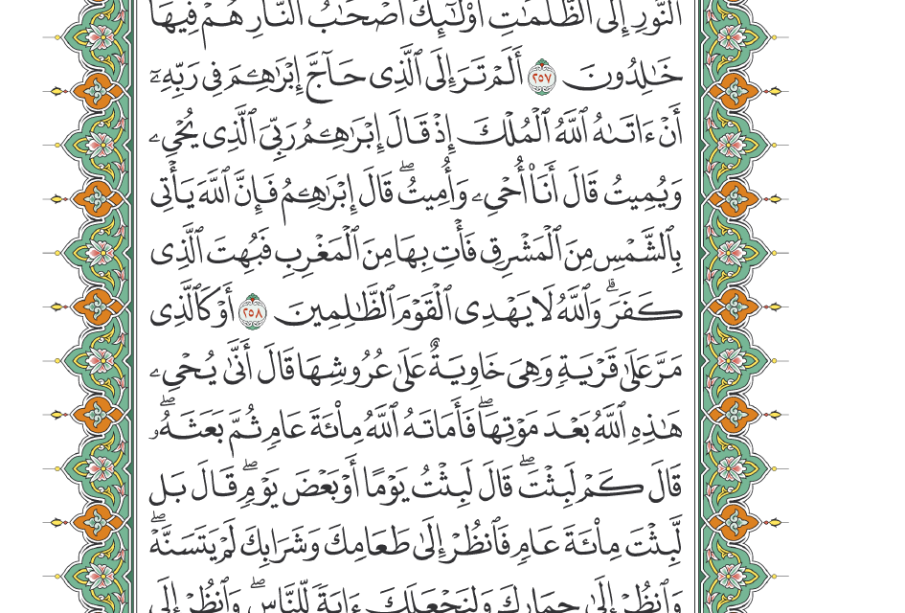 ٱلنُّورِ إِلَى ٱلظُّلُمَٰتِ أُو۟لَٰٓئِكَ أَصْحَٰبُ ٱلنَّارِ هُمْ فِيهَا
خَٰلِدُونَ ٢٥٧ أَلَمْ تَرَ إِلَى ٱلَّذِى حَآجَّ إِبْرَٰهِـۧمَ فِى رَبِّهِۦٓ
أَنْ ءَاتَىٰهُ ٱللَّهُ ٱلْمُلْكَ إِذْ قَالَ إِبْرَٰهِـۧمُ رَبِّىَ ٱلَّذِى يُحْىِۦ
وَيُمِيتُ قَالَ أَنَا۠ أُحْىِۦ وَأُمِيتُ ۖ قَالَ إِبْرَٰهِـۧمُ فَإِنَّ ٱللَّهَ يَأْتِى
بِٱلشَّمْسِ مِنَ ٱلْمَشْرِقِ فَأْتِ بِهَا مِنَ ٱلْمَغْرِبِ فَبُهِتَ ٱلَّذِى
كَفَرَ ۗ وَٱللَّهُ لَا يَهْدِى ٱلْقَوْمَ ٱلظَّٰلِمِينَ ٢٥٨ أَوْ كَٱلَّذِى
مَرَّ عَلَىٰ قَرْيَةٍ وَهِىَ خَاوِيَةٌ عَلَىٰ عُرُوشِهَا قَالَ أَنَّىٰ يُحْىِۦ
هَٰذِهِ ٱللَّهُ بَعْدَ مَوْتِهَا ۖ فَأَمَاتَهُ ٱللَّهُ مِا۟ئَةَ عَامٍ ثُمَّ بَعَثَهُۥ ۖ
قَالَ كَمْ لَبِثْتَ ۖ قَالَ لَبِثْتُ يَوْمًا أَوْ بَعْضَ يَوْمٍ ۖ قَالَ بَل
لَّبِثْتَ مِا۟ئَةَ عَامٍ فَٱنظُرْ إِلَىٰ طَعَامِكَ وَشَرَابِكَ لَمْ يَتَسَنَّهْ ۖ
وَٱنظُرْ إِلَىٰ حِمَارِكَ وَلِنَجْعَلَكَ ءَايَةً لِّلنَّاسِ ۖ وَٱنظُرْ إِلَى